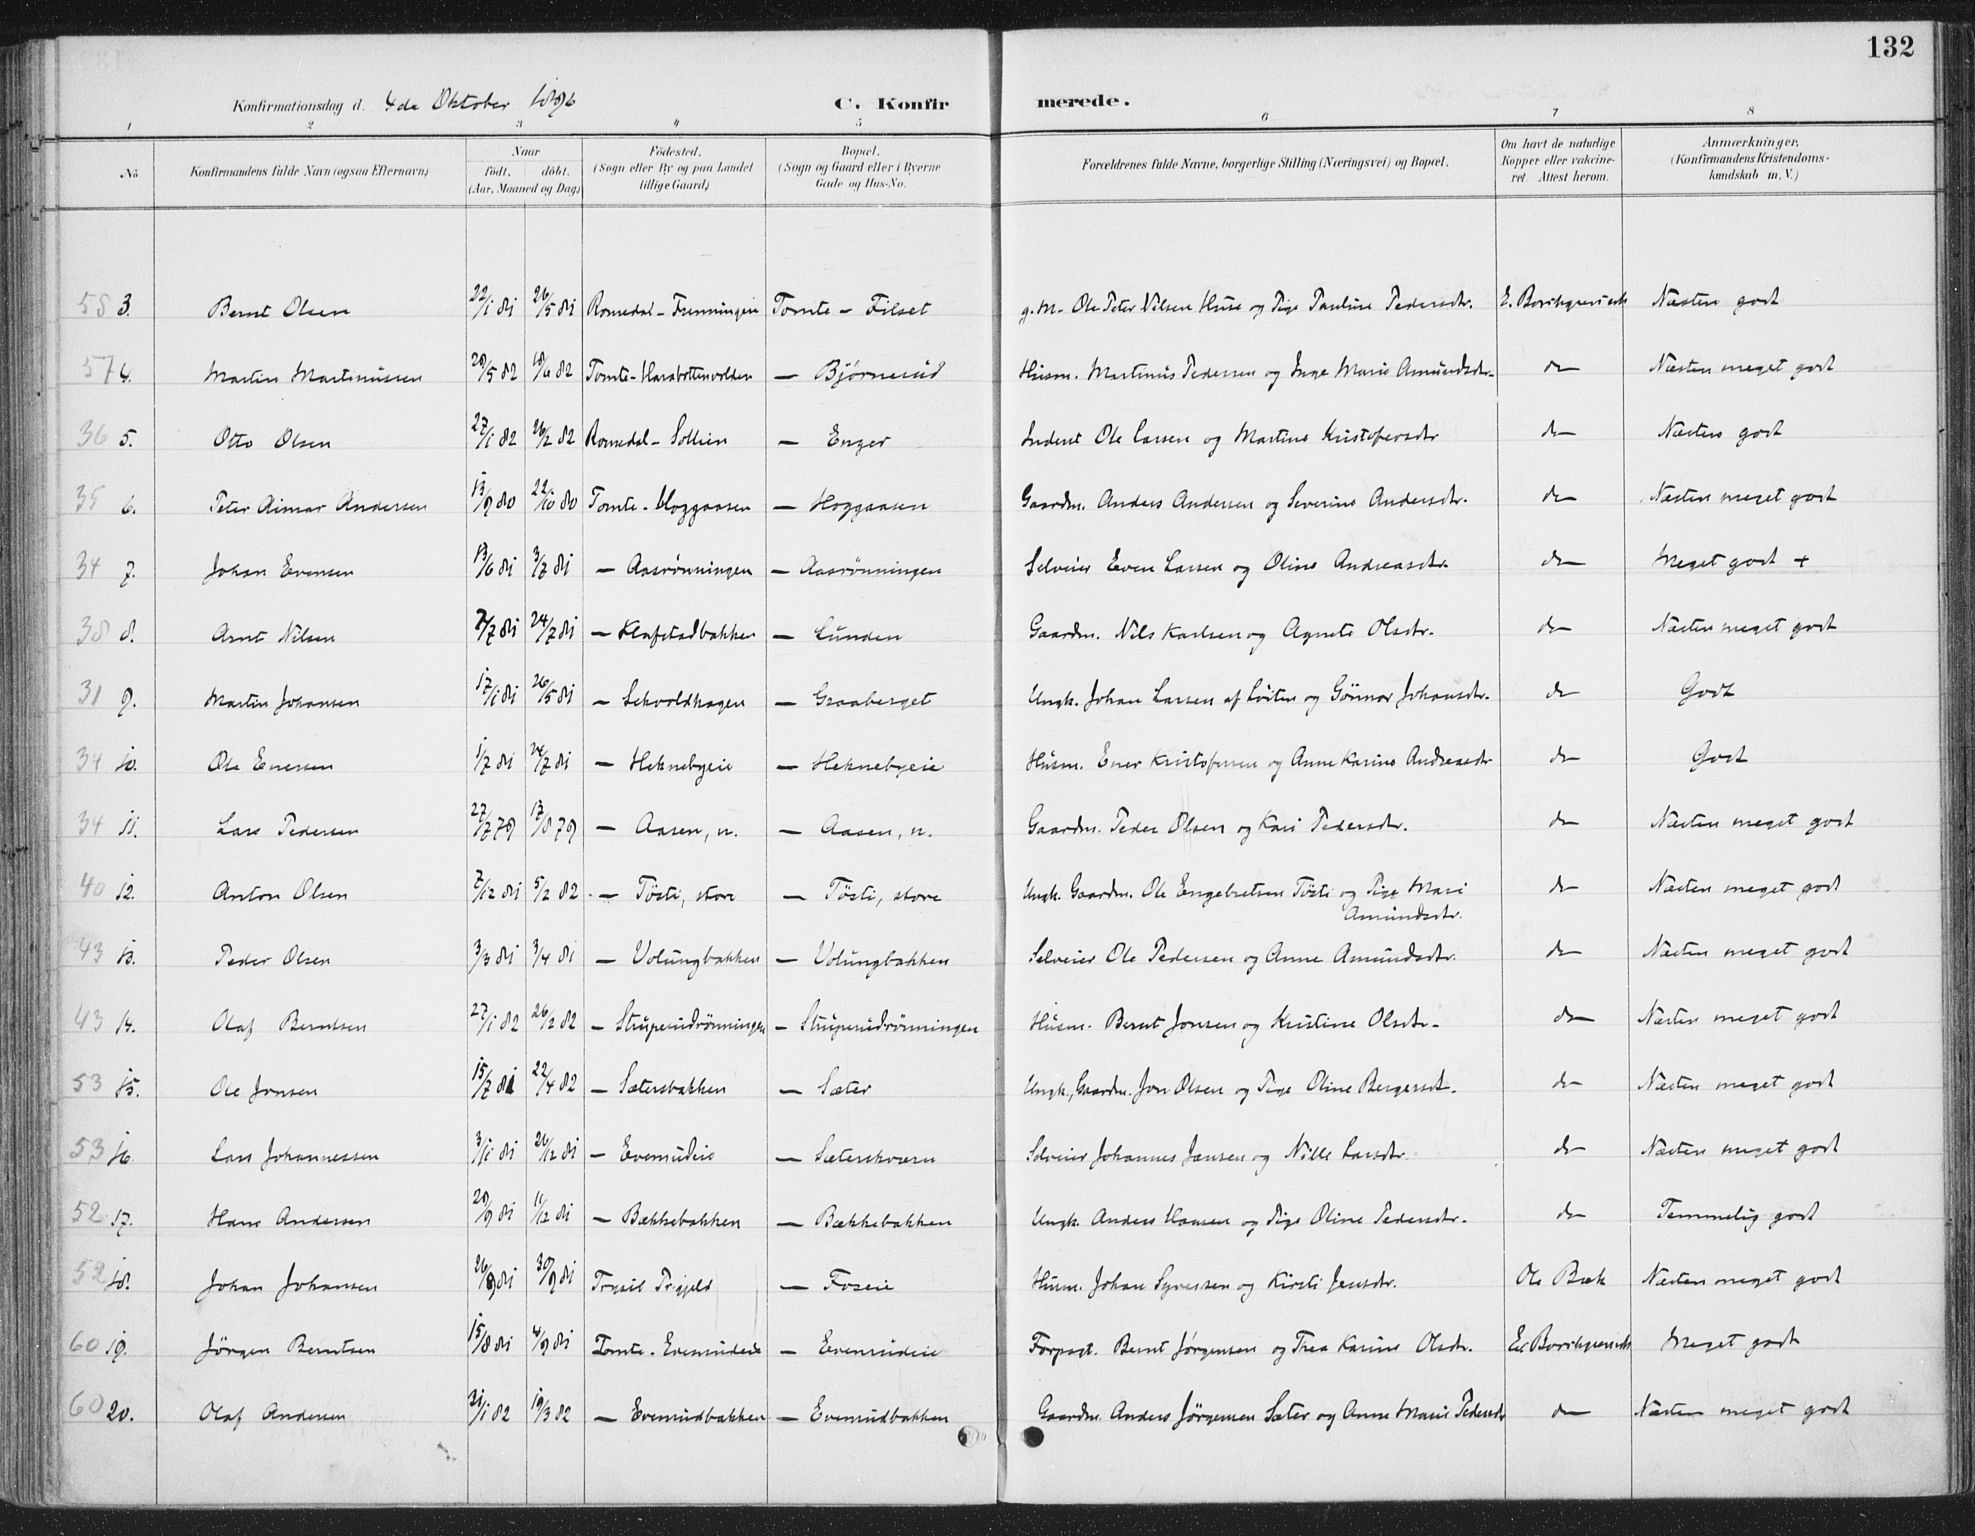 132
Konfirmationsdag d. 4de Oktober 1896 C. Konfirmerede.
1 2 3 4 5 6 7 8
No Konfirmandens fulde Navn (ogsaa Efternavn) Naar født. døbt. (Aar, Maaned og Dag) Fødested. (Sogn eller By og paa Landet tillige Gaard) Bopæl. (Sogn og Gaard eller i Byerne Gade og Hus-No. Forældrenes fulde Navne, borgerlige Stilling (Næringsvei) og Bopæl. Om havt de naturlige Kopper eller vakcineret. Attest herom. Anmærkninger. (Konfirmandens Kristendomskundskab m. V.)
58 3. Bernt Olsen 22/1 81 26/5 81 Romedal - Frenningen Tomte - Filset g. M. Ole Peter Nilsen Huse og Pige Pauline Pedersdtr. E. Borchgrevinck Næsten godt
57 4. Martin Martinussen 29/5 82 18/6 82 Tomte - Harabottenvolden — Bjørnerud Husm. Martinus Pedersen og Inge Marie Amundsdtr. do Næsten meget godt
36 5. Otto Olsen 27/1 82 26/2 82 Romedal - Sollien — Enger Inderst Ole Larsen og Martine Kristofersdtr do Næsten godt
35 6. Peter Aimar Andersen 13/9 80 22/10 80 Tomte - Hoggaasen — Hoggaasen Gaardm. Anders Andersen og Severine Andersdtr. do Næsten meget godt
34 7. Johan Evensen 13/6 81 3/7 81 — Aasrönningen — Aasrönningen Selveier Even Larsen og Oline Andreasdtr. do Meget godt +
38 8. Arnt Nilsen 7/7 81 24/7 81 — Klafstadbakken — Lunden Gaardm. Nils Karlsen og Agnete Olsdtr. do Næsten meget godt
31 9. Martin Johansen 17/1 81 26/5 81 — Sekvoldhagen — Graaberget Ungk. Johan Larsen af Löiten og Günnor Johansdtr. do Godt
34 10. Ole Enersen 1/7 81 24/7 81 — Heknebyeie — Heknebyeie Husm. Ener Kristofersen og Anne Karine Andreasdtr do Godt
34 11. Lars Pedersen 27/7 79 17/8 79 — Aasen, n. — Aasen, n. Gaardm. Peder Olsen og Kari Pedersdtr. do Næsten meget godt
40 12. Anton Olsen 7/12 81 5/2 82 — Tösti, store — Tösti, store Ungk. Gaardm. Ole Engebretsen Tösti og Pige Mari Amundsdtr. do Næsten meget godt
43 13. Peder Olsen 3/3 81 3/4 81 — Volungbakken — Volungbakken Selveier Ole Pedersen og Anne Amundsdtr. do Næsten meget godt
43 14. Olaf Berntsen 27/1 82 26/2 82 — Struperudrönningen — Struperudrönningen Husm. Bernt Jonsen og Kristine Olsdtr. do Næsten meget godt
53 15. Ole Jonsen 15/7 81 22/4 82 — Sætersbakken — Sæter Ungk., Gaardm. Jon Olsen og Pige Oline Bergersdt. do Næsten meget godt
53 16. Lars Johannessen 3/11 81 26/12 81 — Evenrudeie — Sæterskværn Selveier Johannes Jansen og Nille Larsdtr. do Næsten meget godt
52 17. Hans Andersen 29/9 81 11/12 81 — Bækkebakken — Bækkebakken Ungk. Anders Hansen og Pige Oline Pedersdtr. do Temmelig godt
52 18. Johan Johansen 26/8 81 30/9 81 Trysil Prgjeld — Foseie Husm. Johan Syversen og Kirsti Jensdtr. Ole Bæk Næsten meget godt
60 19. Jörgen Berntsen 15/8 81 4/9 81 Tomte - Evenrudeie — Evenrudeie Forpagt. Bernt Jørgensen og Thea Karine Olsdtr. E. Borchgrevinck Meget godt
60 20. Olaf Andersen 31/1 82 19/3 82 — Evenrudbakken — Evenrudbakken Gaardm. Anders Jørgensen Sæter og Anne Marie Pedersdtr do Næsten meget godt